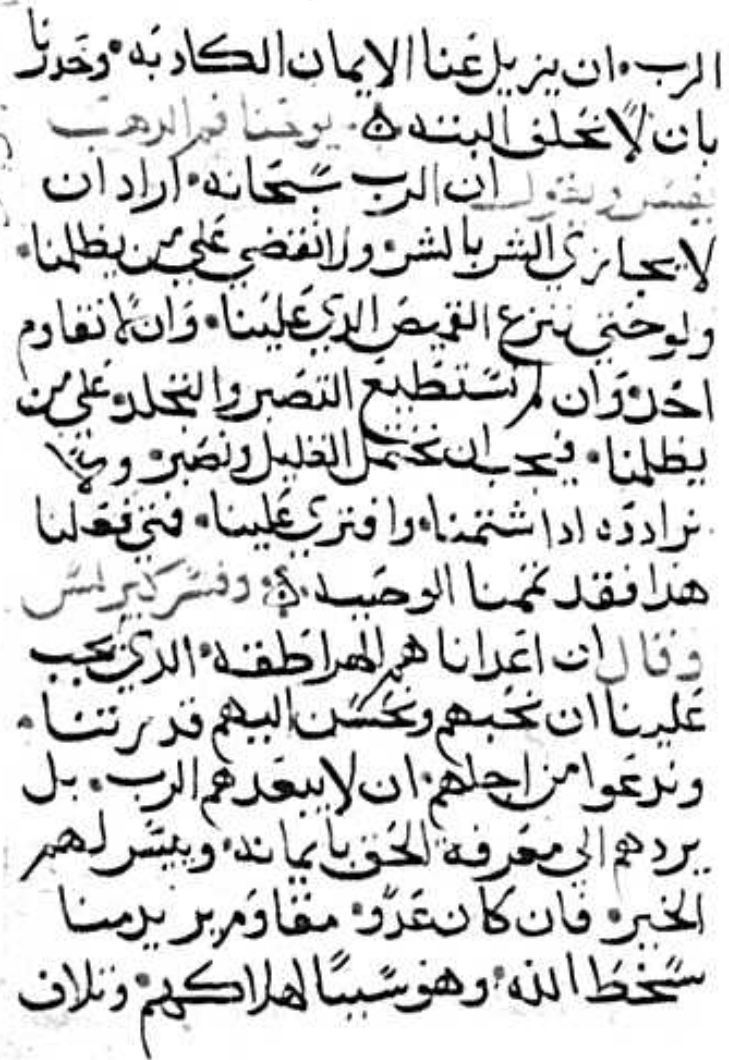 الرب. ان يزيل عنا الايمان الكادبه. وحدرنا
بان لا نحلف البته ݣ. يوحنا فم الدهب
يفسر ويقول ان الرب سبحانه. اراد ان
لا يجازي الشر بالشر. ولا نقضي علي من يظلمنا.
ولو حتي ننزع القميص الدي علينا. وان لا نقاوم
احد. وان لم نستطيع التصبر والتجلد. علي من
يظلمنا. فيجب ان نحتمل القليل ونصبر. ولا
نرادده ادا شتمنا. وافتري علينا. فمتي فعلنا
هدا فقد تممنا الوصيه. وفسر كيرلس
وقال ان اعدانا هم الهراطقه. الدي يجب
علينا ان نحبهم ونحسن اليهم قدرتنا.
وندعوا من اجلهم. ان لا يبعدهم الرب. بل
يردهم الي معرفة الحق بايمانه. وييسر لهم
الخير. فان كان عدو. مقاوم يريد منا
سخط الله. وهو سببًا لهلاكهم. وتلاف